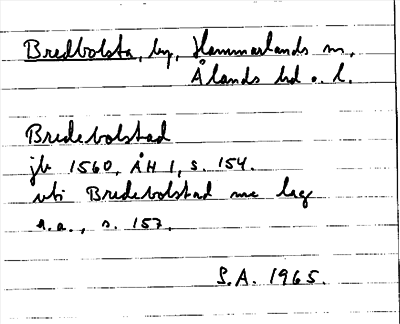 Bredbolsta, by, Hammarlands sn,
Ålands hd o. l.
Bredebolstad
jb 1560, ÅH 1, s. 154.
vti Bredebolstad me lag
s.a., s. 157.
S.A. 1965.